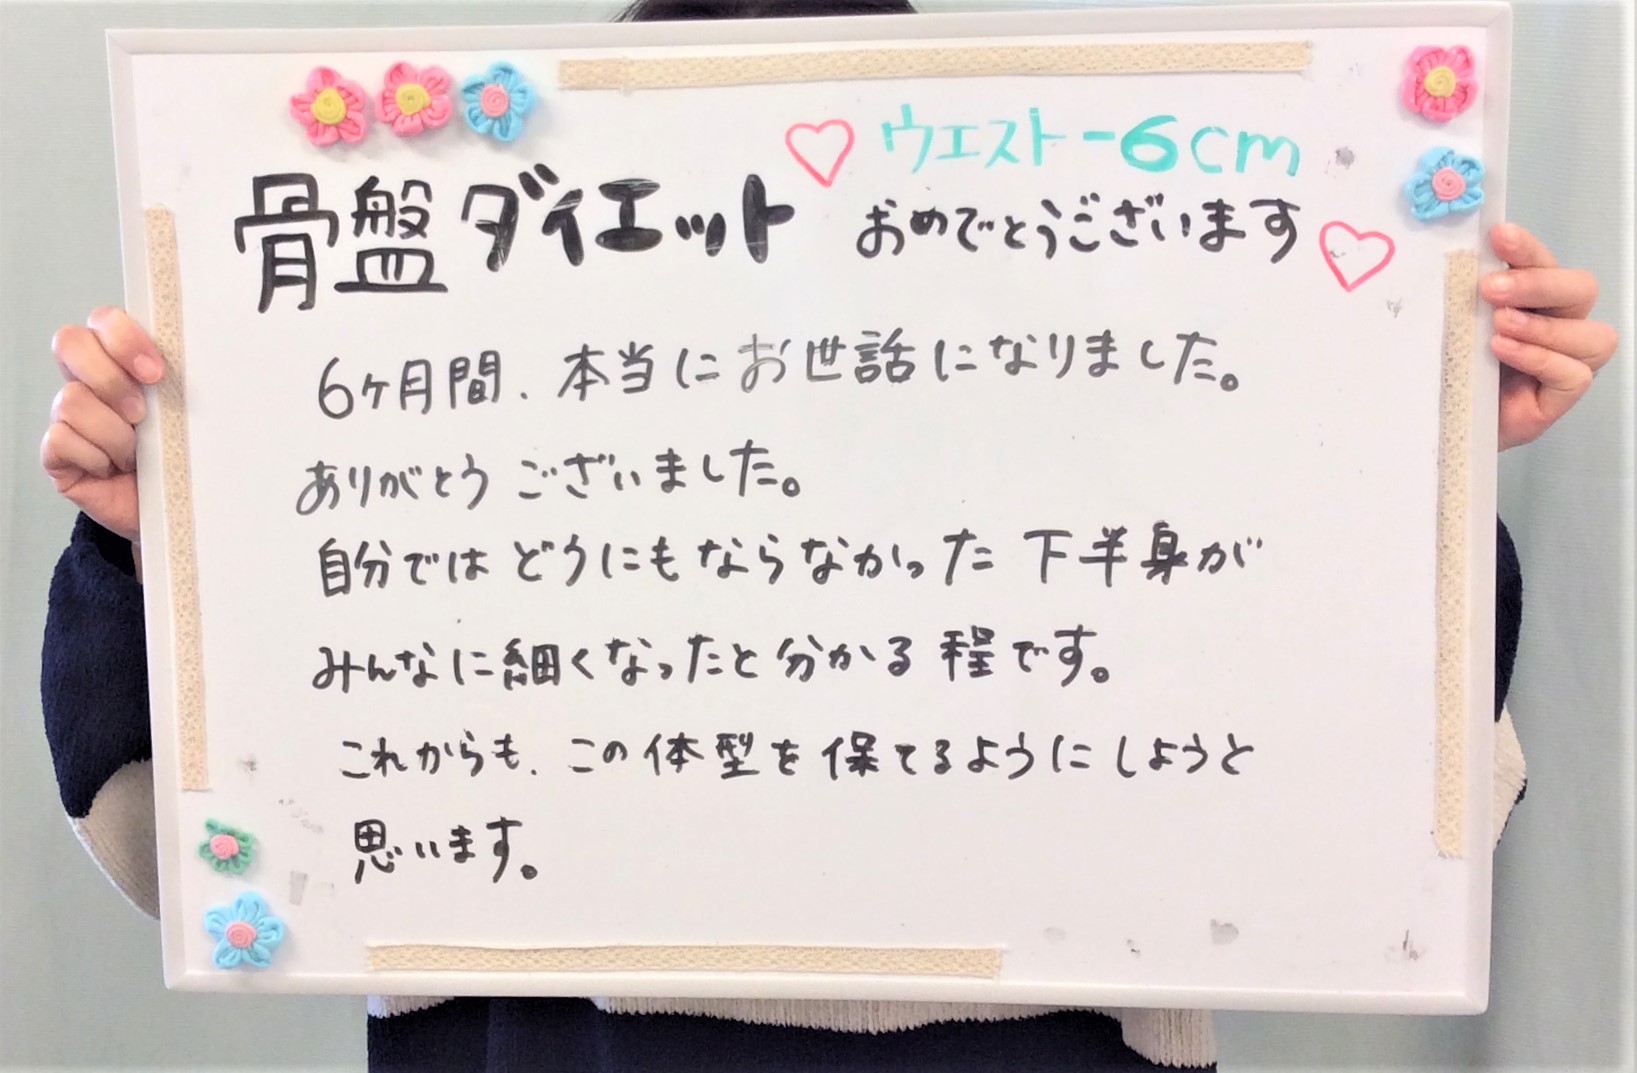 ウエスト-6cm
骨盤ダイエット おめでとうございます
6ヶ月間、本当にお世話になりました。
ありがとうございました。
自分ではどうにもならなかった下半身が
みんなに細くなったと分かる程です。
これからも、この体型を保てるようにしようと
思います。